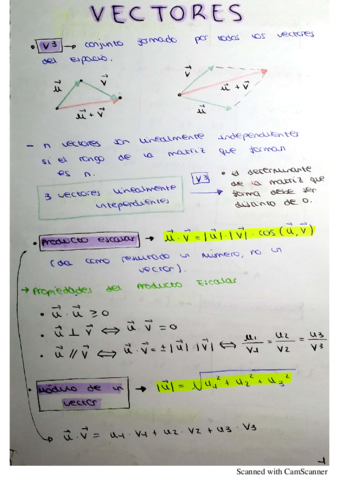 VECTORES
• V3 → conjunto formado por todos los vectores
del espacio.
u⃗ v⃗ u⃗ + v⃗
v⃗ u⃗ + v⃗ u⃗
– n vectores son linealmente independientes
si el rango de la matriz que forman
es n.
3 vectores linealmente
independientes
V3
• el determinante
de la matriz que
forma debe ser
distinto de 0.
• Producto escalar → u⃗ · v⃗ = |u⃗| · |v⃗| · cos (u⃗, v⃗)
(da como resultado un número, no un
vector).
→ Propiedades del Producto Escalar
• u⃗ · u⃗ ≥ 0
• u⃗ ⊥ v⃗ ⟺ u⃗ · v⃗ = 0
• u⃗ ∥ v⃗ ⟺ u⃗ · v⃗ = ± |u⃗| · |v⃗| ⟺ u1/v1 = u2/v2 = u3/v3
• Módulo de un
vector → |u⃗| = √u1² + u2² + u3²
→ u⃗ · v⃗ = u1 · v1 + u2 · v2 + u3 · v3
Scanned with CamScanner